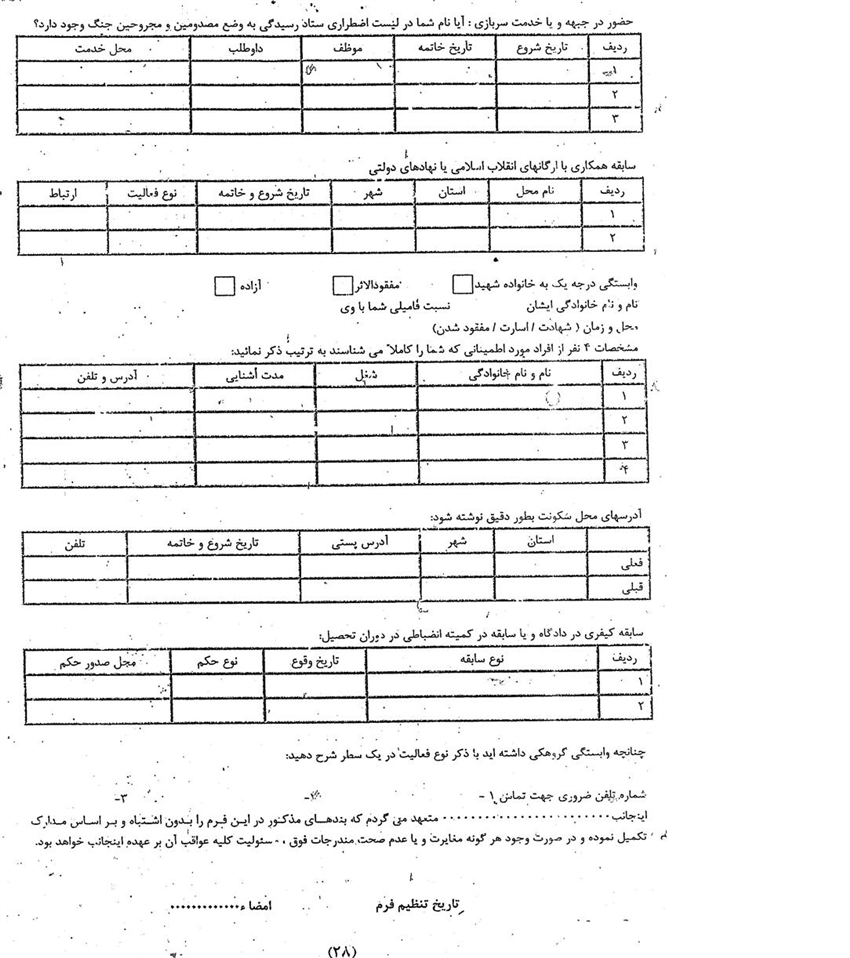 حضور در جبهه و یا خدمت سربازی : آیا نام شما در لیست اضطراری ستاد رسیدگی به وضع مصدومین و مجروحین جنگ وجود دارد؟
ردیف تاریخ شروع تاریخ خاتمه موظف داوطلب محل خدمت
۱
۲
۳
سابقه همکاری با ارگانهای انقلاب اسلامی یا نهادهای دولتی
ردیف نام محل استان شهر تاریخ شروع و خاتمه نوع فعالیت ارتباط
۱
۲
وابستگی درجه یک به خانواده شهید مفقودالاثر آزاده
نام و نام خانوادگی ایشان نسبت فامیلی شما با وی
محل و زمان ( شهادت / اسارت / مفقود شدن)
مشخصات ۴ نفر از افراد مورد اطمینانی که شما را کاملاً می شناسند به ترتیب ذکر نمائید:
ردیف نام و نام خانوادگی شغل مدت آشنایی آدرس و تلفن
۱
۲
۳
۴
آدرسهای محل سکونت بطور دقیق نوشته شود:
استان شهر آدرس پستی تاریخ شروع و خاتمه تلفن
فعلی
قبلی
سابقه کیفری در دادگاه و یا سابقه در کمیته انضباطی در دوران تحصیل:
ردیف نوع سابقه تاریخ وقوع نوع حکم محل صدور حکم
۱
۲
چنانچه وابستگی گروهکی داشته اید با ذکر نوع فعالیت در یک سطر شرح دهید:
شماره تلفن ضروری جهت تماس ۱ - ۲- ۳-
اینجانب.................... متعهد می گردم که بندهای مذکور در این فرم را بدون اشتباه و بر اساس مدارک
تکمیل نموده و در صورت وجود هر گونه مغایرت و یا عدم صحت مندرجات فوق ، مسئولیت کلیه عواقب آن بر عهده اینجانب خواهد بود.
تاریخ تنظیم فرم امضاء.............
(۲۸)